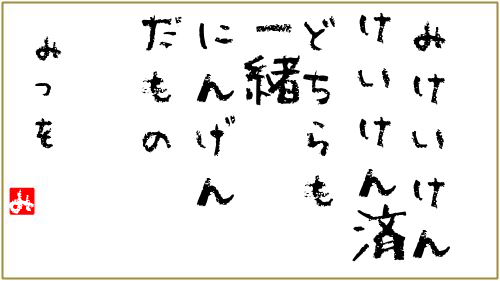 みけいけん
けいけん済
どちらも
一緒
にんげん
だもの
みつを
み